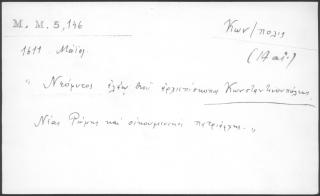 M. M. 5, 146
Κων/πολις
1611 Μάϊος
(17 αἰ.)
"Νεόφυτος ἐλέῳ Θεοῦ ἀρχιεπίσκοπος Κωνσταντινουπόλεως
Νέας Ρώμης καὶ οἰκουμενικὸς πατριάρχης."